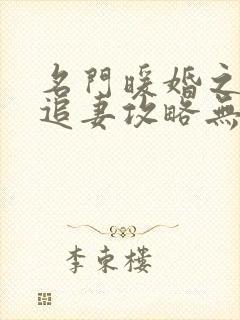 名門暖婚之
追妻攻略無
李東樓